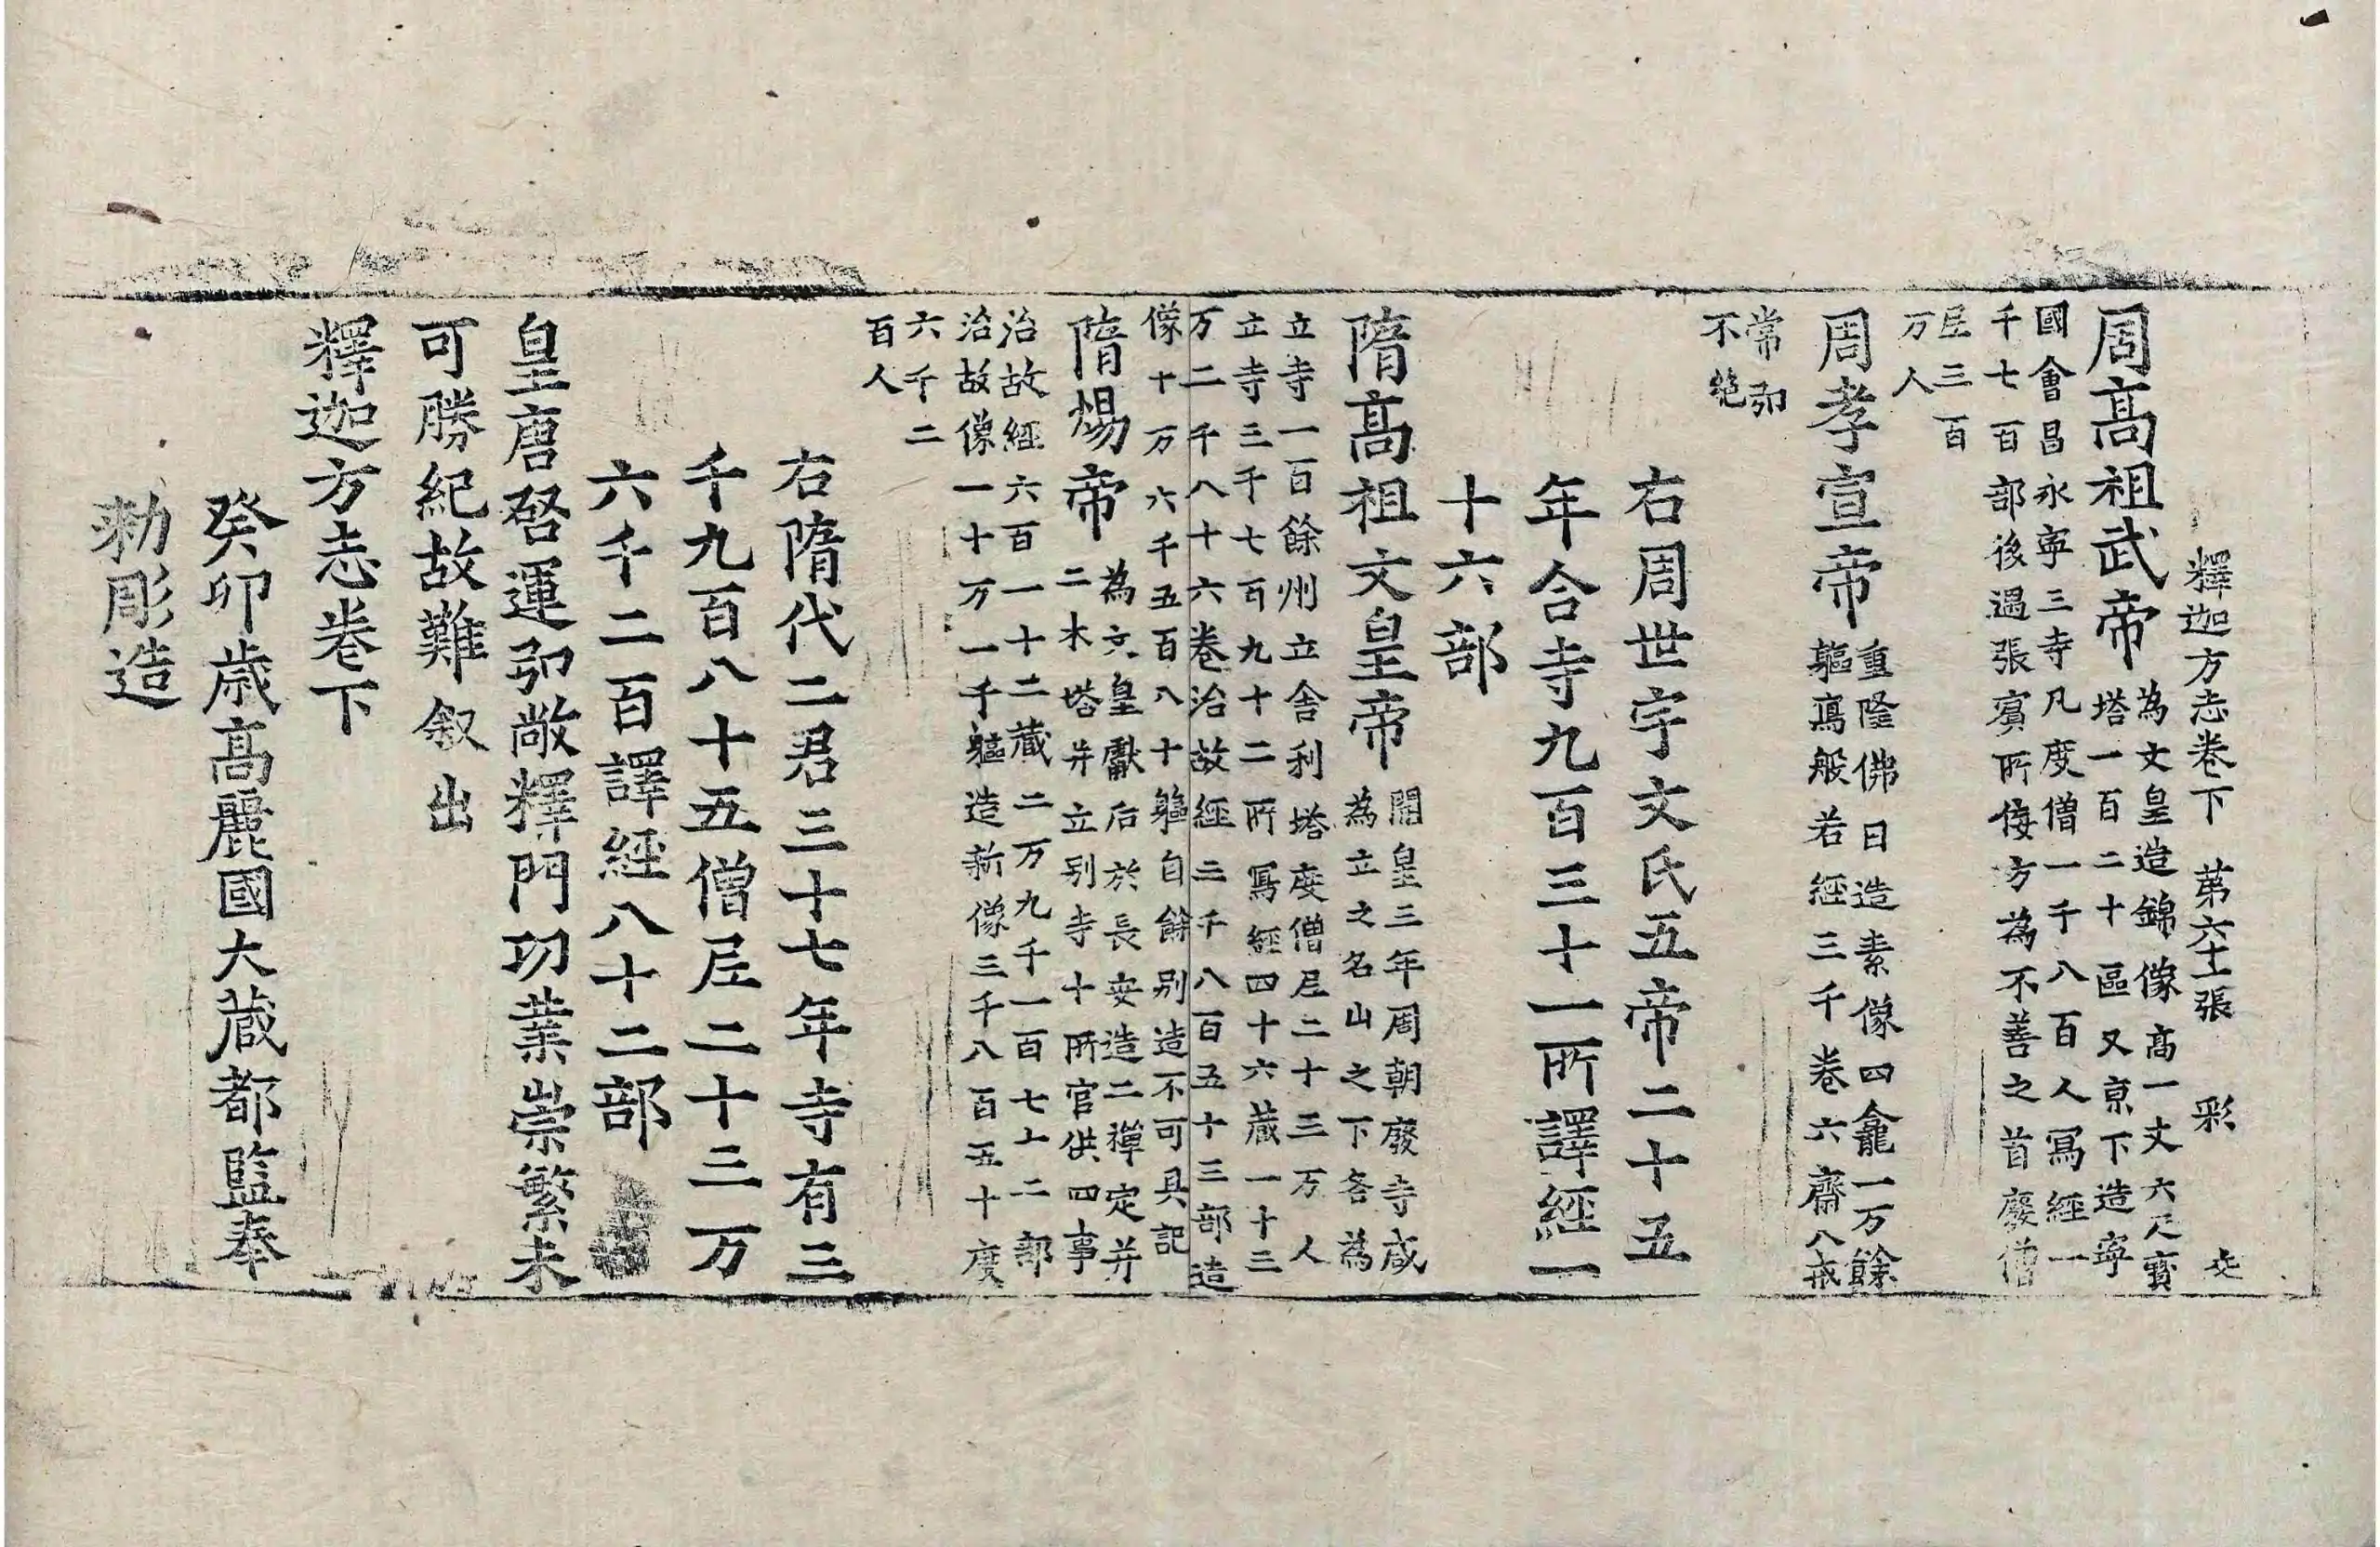 釋迦方志卷下 第六十二張 彩
周高祖武帝 為文皇造錦像高一丈六尺寶
塔一百二十區又京下造寧
國會昌永寧三寺凡度僧一千八百人寫經一
千七百部後過張賓所侮方為不善之首廢僧
尼三百
万人
周孝宣帝 重隆佛日造素像四龕一万餘
軀寫般若經三千卷六齋八戒
常弘
不絶
右周世宇文氏五帝二十五
年合寺九百三十一所譯經一
十六部
隋髙祖文皇帝 開皇三年周朝廢寺咸
為立之名山之下各為
立寺一百餘州立舍利塔度僧尼二十三万人
立寺三千七百九十二所寫經四十六藏一十三
万二千八十六卷治故經三千八百五十三部造
像十万六千五百八十軀自餘别造不可具記
隋煬帝 為文皇獻后於長安造二禪定并
二木塔并立别寺十所官供四事
治故經六百一十二藏二万九千一百七十二部
治故像一十万一千軀造新像三千八百五十度
六千二
百人
右隋代二君三十七年寺有三
千九百八十五僧尼二十三万
六千二百譯經八十二部
皇唐啓運弘敞釋門功業崇繁未
可勝紀故難叙出
釋迦方志卷下
癸卯歳髙麗國大藏都監奉
勅彫造